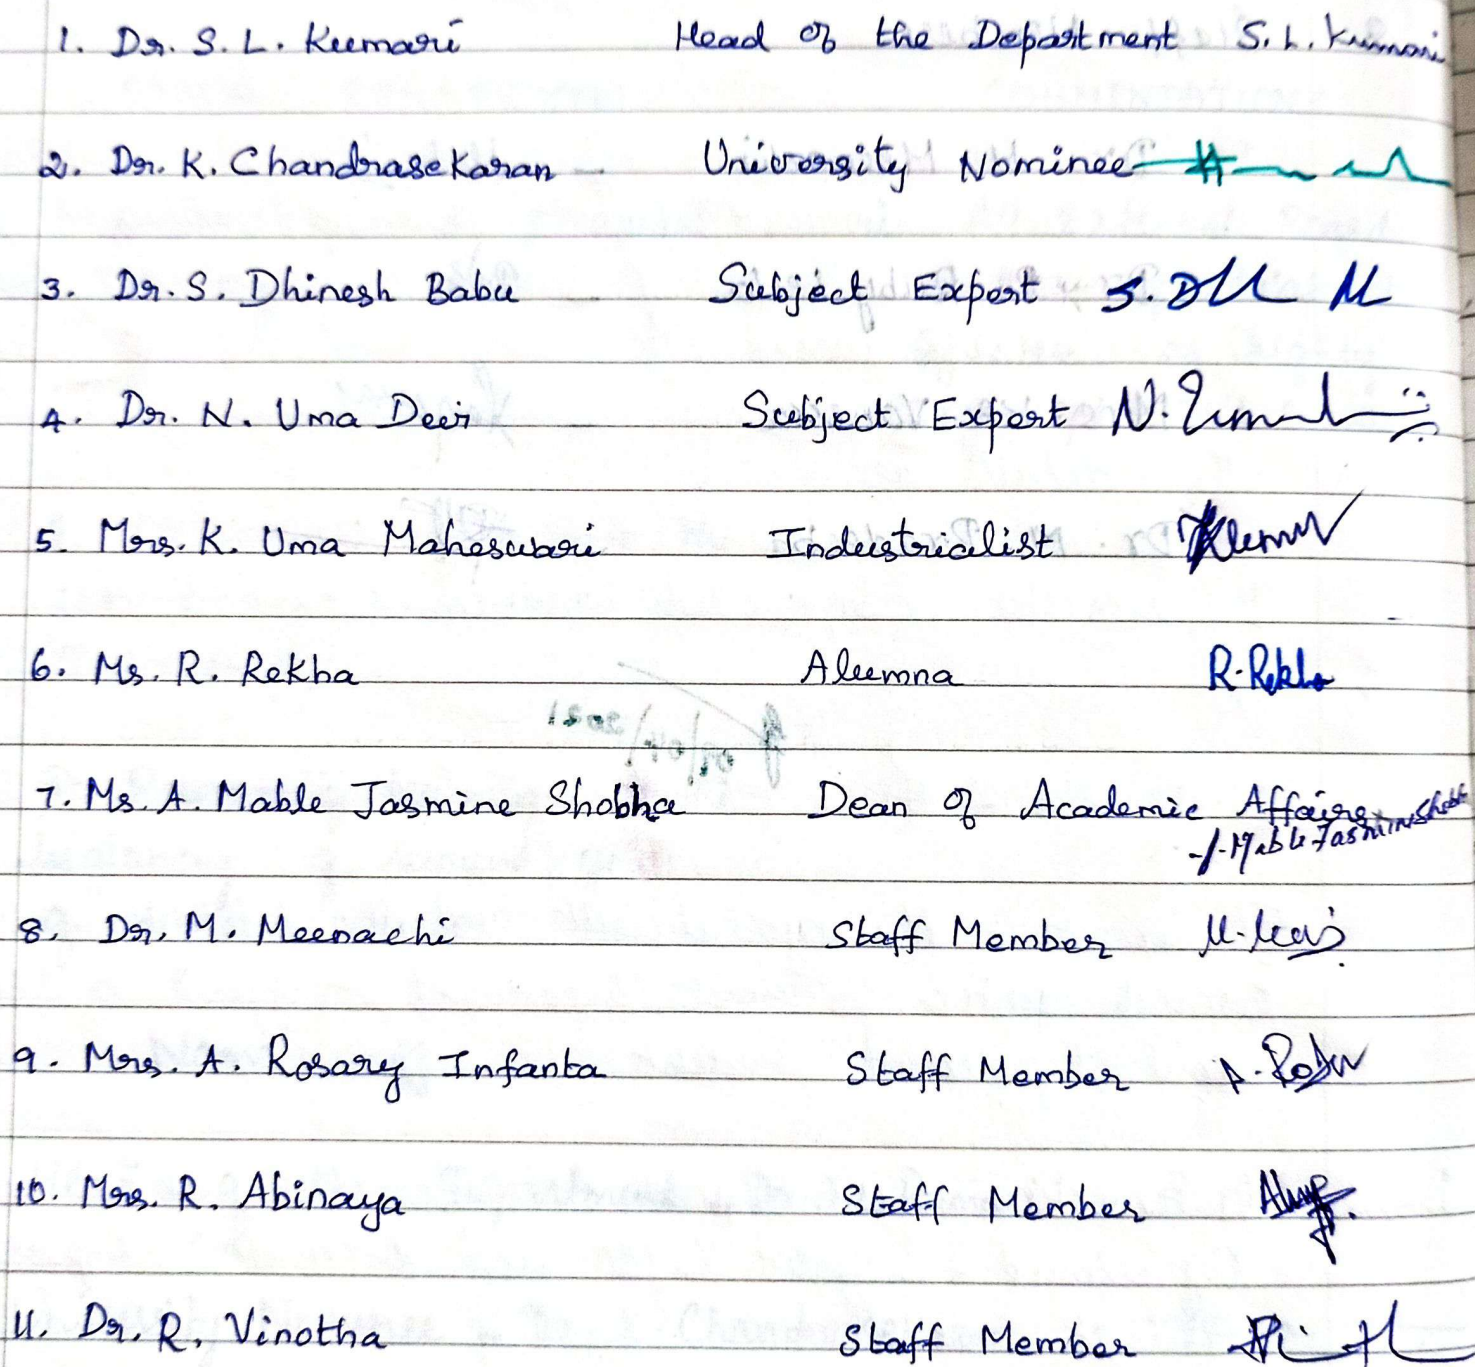 1. Dr. S. L. Kumari Head of the Department S. L. Kumari
2. Dr. K. Chandrasekaran University Nominee
3. Dr. S. Dhinesh Babu Subject Expert
4. Dr. N. Uma Devi Subject Expert
5. Mrs. K. Uma Maheswari Industrialist
6. Ms. R. Rekha Alumna R. Rekha
7. Ms. A. Mable Jasmine Shobha Dean of Academic Affairs
A. Mable Jasmine Shobha
8. Dr. M. Meenachi Staff Member
9. Mrs. A. Rosary Infanta Staff Member
10. Mrs. R. Abinaya Staff Member
11. Dr. R. Vinotha Staff Member